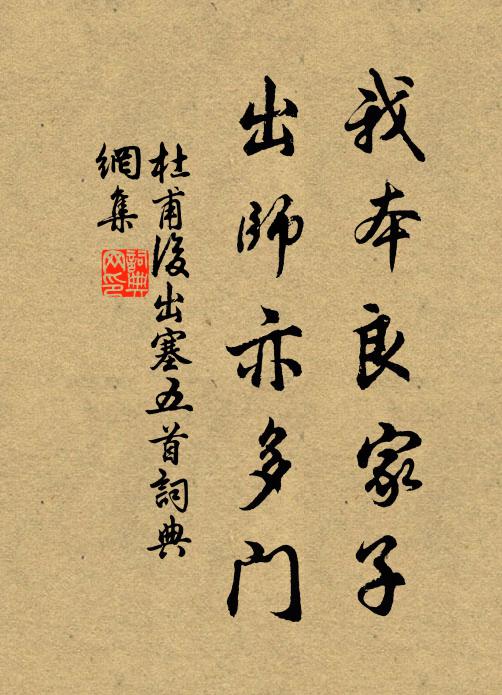 我本良家子
出師亦多門
杜甫後出塞五首詞典
網集
詞典
网印